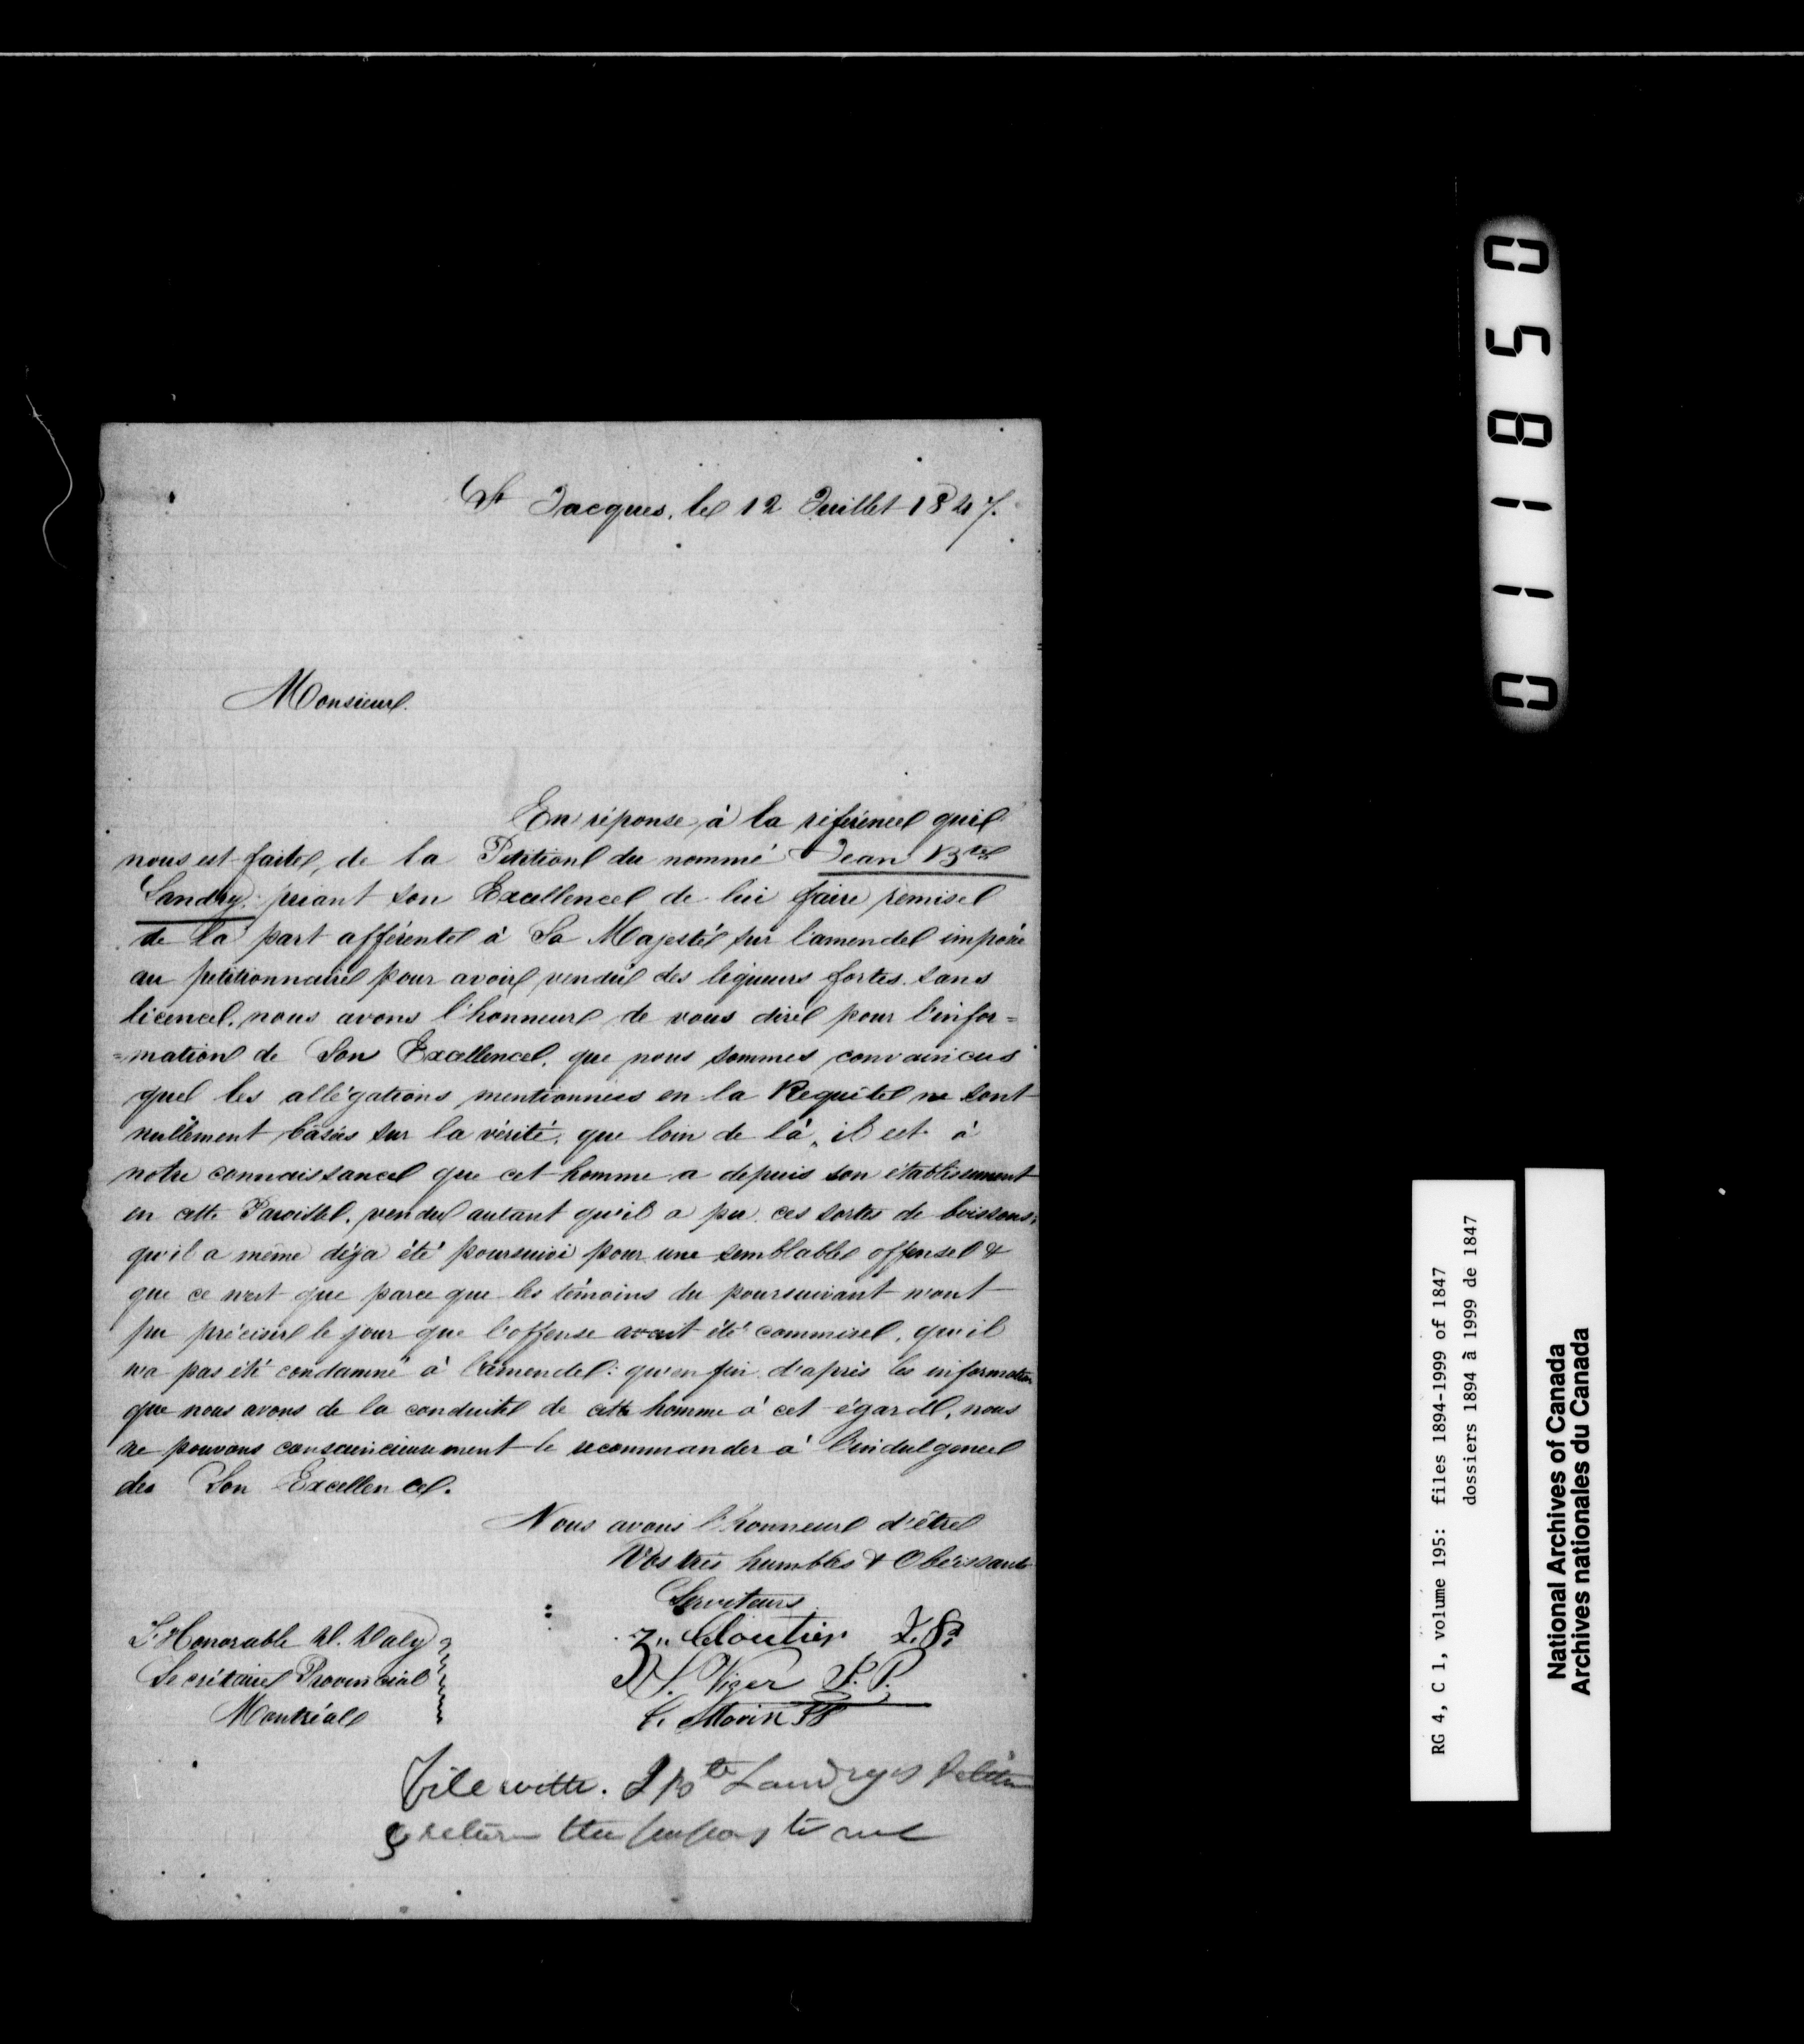 St Jacques, le 12 Juillet 1847.
Monsieur.
En réponse à la référence qu'il
nous est faite, de la Petition du nommé Jean Bte
Landry, priant son Excellence de lui faire remise
de la part afférente à Sa Majesté sur l'amende imposée
au petitionnaire pour avoir vendu des liqueurs fortes sans
licence, nous avons l'honneur de vous dire pour l'infor=
=mation de Son Excellence, que nous sommes convaincus
que les allégations mentionnées en la Requête ne sont
nullement basées sur la vérité, que loin de là, il est à
notre connaissance que cet homme a depuis son établissement
en cette Paroisse, vendu autant qu'il a pu ces sortes de boissons,
qu'il a même déja été poursuivi pour une semblable offense &
que ce n'est que parce que les témoins du poursuivant n'ont
pu préciser le jour que l'offense avait été commise, qu'il
n'a pas été condamné à l'amende: qu'en fin d'après les information
que nous avons de la conduite de cette homme à cet égard, nous
ne pouvons consciencieusement le recommander à l'indulgence
de Son Excellence.
Nous avons l'honneur d'être
Vos très humbles & Obéissants
Serviteurs
Z. Cloutier J.P.
L'Honorable D. Daly
Secrétaire Provincial
Montréal
S. Viger J.P.
Morin JP
File with J Bte Landry's Petition
& return the papers to me
011850
RG 4, C 1, volume 195: files 1894-1999 of 1847
dossiers 1894 à 1999 de 1847
National Archives of Canada
Archives nationales du Canada